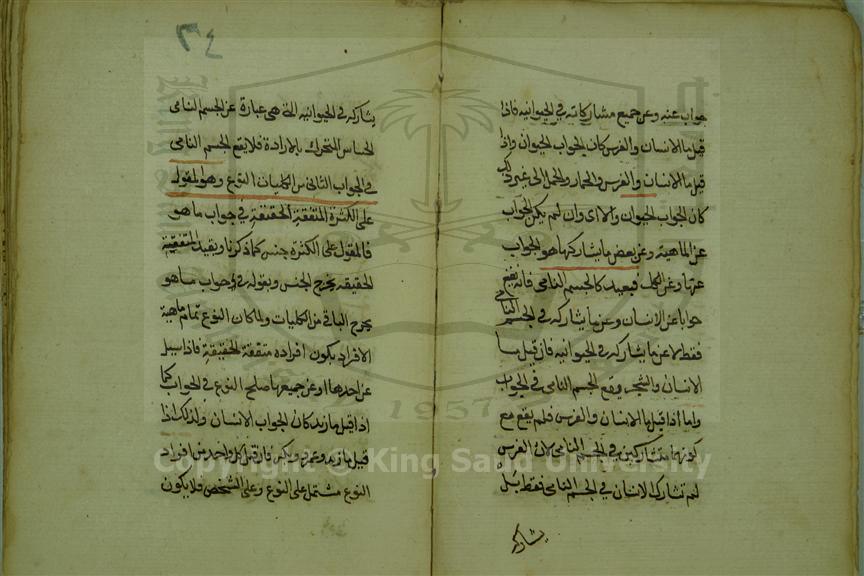 جواب عنه وعن جميع مشاركاته في الحيوانيه فاذا
قيل ما الانسان والفرس كان الجواب الحيوان واذا
قيل ما الانسان والفرس والحمار والجمل الى غير ذلك
كان الجواب الحيوان والا اى وان لم يكن الجواب
عن الماهية وعن بعض ما يشاركها هو الجواب
عنها وعن الكل فبعيد كالجسم النامى فانه يقع
جوابا عن الانسان وعن ما يشاركه في الجسم النامى
فقط لا عن ما يشاركه في الحيوانيه فان قيل ما
الانسان والشجر وقع الجسم النامى في الجواب
واما اذا قيل ما الانسان والفرس فلم يقع مع
كونهما متشاركين في الجسم النامى لان الفرس
لم تشارك الانسان في الجسم النامى فقط بل
يشاركه
٣٤
يشاركه في الحيوانيه التى هى عبارة عن الجسم النامى
الحساس المتحرك بالارادة فلا يقع الجسم النامى
في الجواب الثانى من الكليات النوع وهو المقول
على الكثرة المتفقة الحقيقة في جواب ما هو
فالمقول على الكثرة جنس كما ذكرنا وبقيد المتفقة
الحقيقه يخرج الجنس وبقوله في جواب ما هو
يخرج الباقى من الكليات ولما كان النوع تمام ماهية
الافراد يكون افراده متفقة الحقيقة فاذا سيل
عن احدها او عن جميعها صلح النوع في الجواب كما
اذا قيل ما زيد كان الجواب الانسان وكذلك اذا
قيل ما زيد وعمرو وبكر فان قيل كل واحد من افراد
النوع مشتمل على النوع وعلى الشخص فلا يكون
Copyright © King Saud University
1957